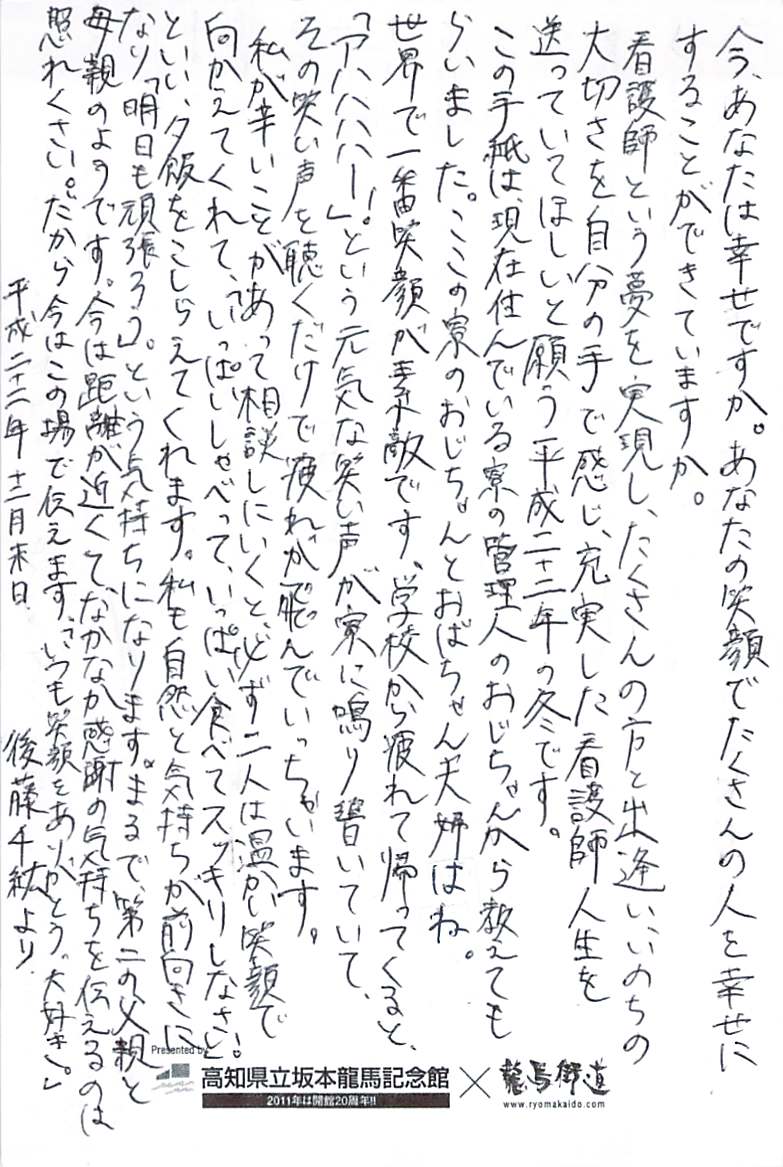 今、あなたは幸せですか。あなたの笑顔でたくさんの人を幸せに
することができていますか。
看護師という夢を実現し、たくさんの方と出逢い、いのちの
大切さを自分の手で感じ、充実した看護師人生を
送っていてほしいと願う平成二十二年の冬です。
この手紙は、現在住んでいる寮の管理人のおじちゃんから教えても
らいました。ここの寮のおじちゃんとおばちゃん夫婦はね。
世界で一番笑顔が素敵です。学校から疲れて帰ってくると、
「アハハハハー！」。という元気な笑い声が寮に鳴り響いていて、
その笑い声を聴くだけで疲れが飛んでいっちゃいます。
私が辛いことがあって相談しにいくと、必ず二人は温かい笑顔で
向かえてくれて、「いっぱいしゃべって、いっぱい食べてスッキリしなさい！」
といい、夕飯をこしらえてくれます。私も自然と気持ちが前向きに
なり「明日も頑張ろう」。という気持ちになります。まるで、第二の父親と
母親のようです。今は距離が近くて、なかなか感謝の気持ちを伝えるのは
照れくさい。だから今はこの場で伝えます。「いつも笑顔をありがとう。大好き。」
平成二十二年 十二月末日 後藤千紘より
Presented by
高知県立坂本龍馬記念館 × 龍馬街道
2011年は開館20周年!!
www.ryomakaido.com